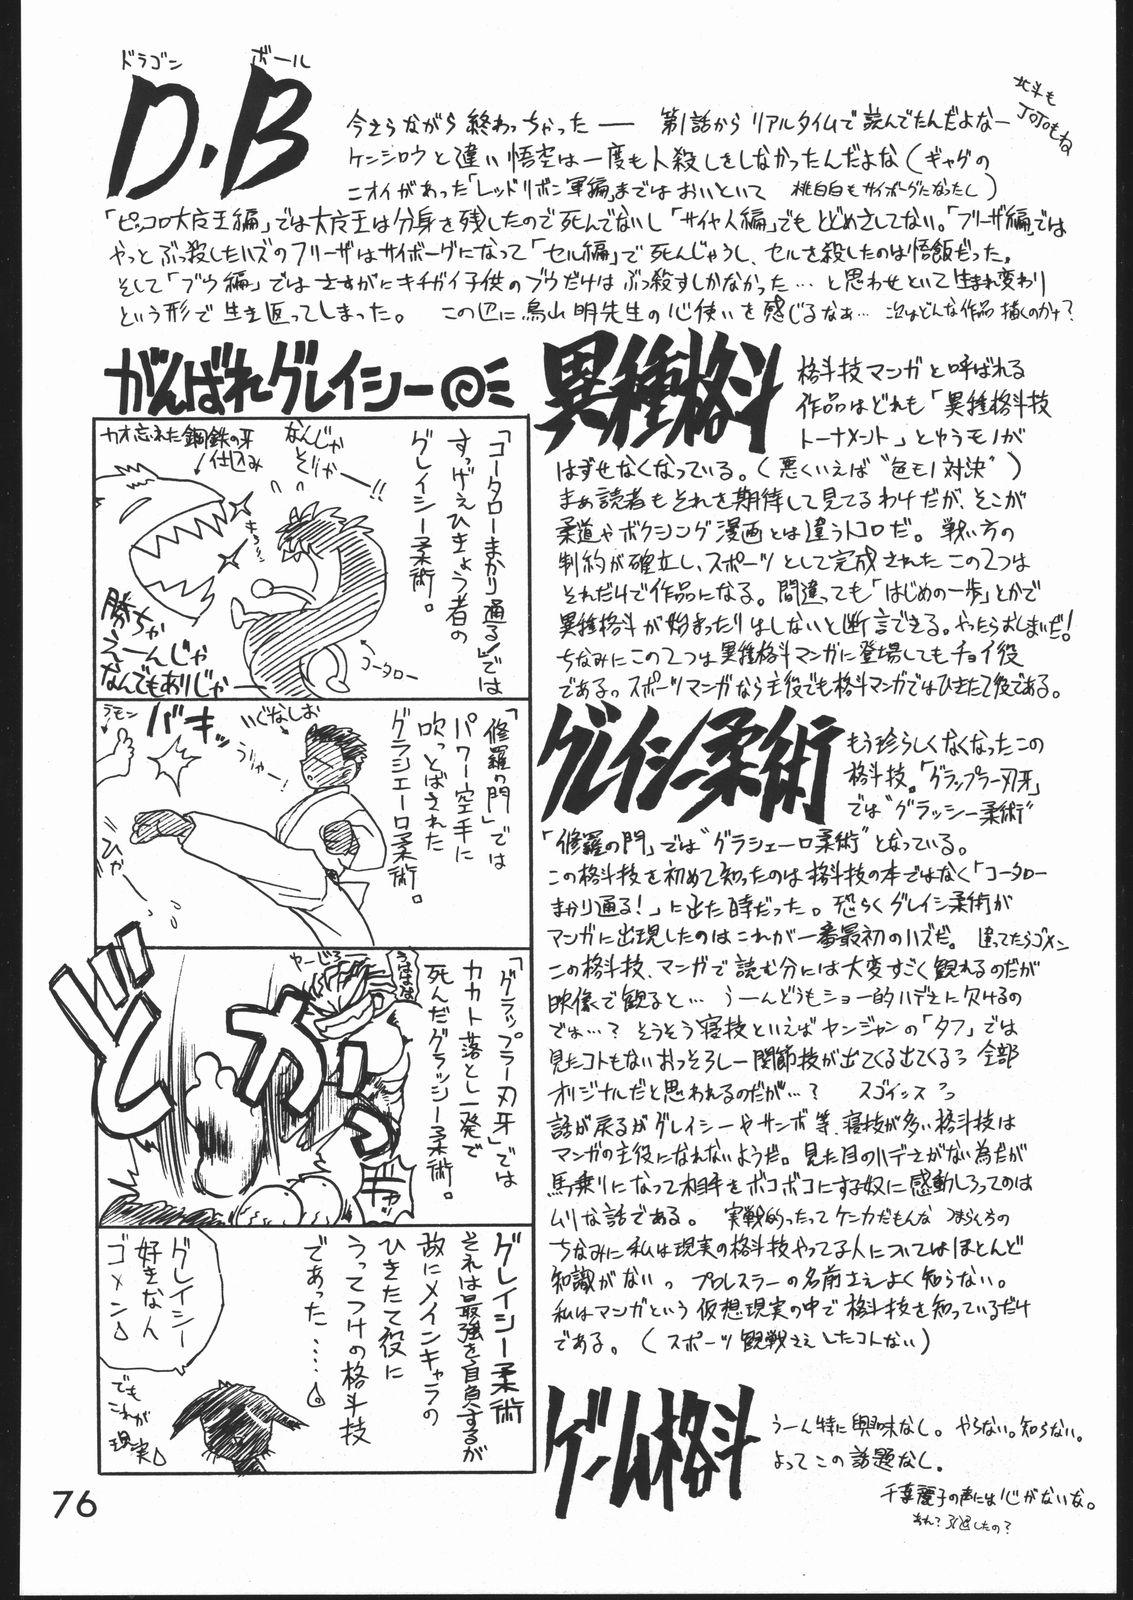 ドラゴン ボール
D.B
北斗も
JOJOもね
今さらながら終わっちゃった── 第1話からリアルタイムで読んでたんだよなー
ケンシロウと違い悟空は一度も人殺しをしなかったんだよな(ギャグの
ニオイがあった「レッドリボン軍編」まではおいといて 桃白白もサイボーグになったし)
「ピッコロ大魔王編」では大魔王は分身を残したので死んでないし「サイヤ人編」でもとどめさしてない。「フリーザ編」では
やっとぶっ殺したハズのフリーザはサイボーグになって「セル編」で死んじゃうし、セルを殺したのは悟飯だった。
そして「ブウ編」ではさすがにキチガイ子供のブウだけはぶっ殺すしかなかった…と思わせといて生まれ変わり
という形で生き返ってしまった。 この辺に鳥山明先生の心使いを感じるなぁ… 次はどんな作品描くのかナ?
がんばれグレイシー
「コータローまかり通る!」では
すっげえひきょう者の
グレイシー柔術。
なんじゃ
そりゃー!!
カオ忘れた 鋼鉄の牙
仕込み
コータロー
勝ちゃ
えーんじゃ
なんでもありじゃー
「修羅の門」では
パワー空手に
吹っとばされた
グラシエーロ柔術。
いぐなしお
うりゃー!
バキッ
ラモン
ひゃー
「グラップラー刃牙」では
カカト落とし一発で
死んだグラッシー柔術。
うははは
やーじろー
どかっ
ギャッ
グレイシー柔術
それは最強を自負するが
故にメインキャラの
ひきたて役に
うってつけの格斗技
であった……
グレイシー
好きな人
ゴメン
でも
これが
現実
異種格斗
格斗技マンガと呼ばれる
作品はどれも「異種格斗技
トーナメント」とゆうモノが
はずせなくなっている。(悪くいえば“色モノ対決”)
まぁ読者もそれを期待して見てるわけだが、そこが
柔道やボクシング漫画とは違うトコロだ。戦い方の
制約が確立し、スポーツとして完成されたこの2つは
それだけで作品になる。間違っても「はじめの一歩」とかで
異種格斗が始まったりはしないと断言できる。やったらおしまいだ!
ちなみにこの2つは異種格斗マンガに登場してもチョイ役
である。スポーツマンガなら主役でも格斗マンガではひきたて役である。
グレイシー柔術
もう珍らしくなくなったこの
格斗技。「グラップラー刃牙」
では“グラッシー柔術”
「修羅の門」では“グラシエーロ柔術”となっている。
この格斗技を初めて知ったのは格斗技の本ではなく「コータロー
まかり通る!」に出た時だった。恐らくグレイシー柔術が
マンガに出現したのはこれが一番最初のハズだ。違ってたらゴメン
この格斗技、マンガで読む分には大変すごく観れるのだが
映像で観ると… うーんどうもショー的ハデさに欠けるの
では…? そうそう寝技といえばヤンジャンの「タフ」では
見たコトもないおっそろしー関節技が出てくる出てくる 全部
オリジナルだと思われるのだが…? スゴイッス
話が戻るがグレイシーやサンボ等、寝技が多い格斗技は
マンガの主役になれないようだ。見た目のハデさがない為だが
馬乗りになって相手をボコボコにする奴に感動しろってのは
ムリな話である。 実戦的ったってケンカだもんな つまらんもの
ちなみに私は現実の格斗技やってる人についてはほとんど
知識がない。プロレスラーの名前さえよく知らない。
私はマンガという仮想現実の中で格斗技を知っているだけ
である。(スポーツ観戦さえしたコトない)
ゲーム格斗
うーん特に興味なし。やらない。知らない。
よってこの話題なし。
千葉麗子の声には心がないな。
あれ? 引退したの?
76